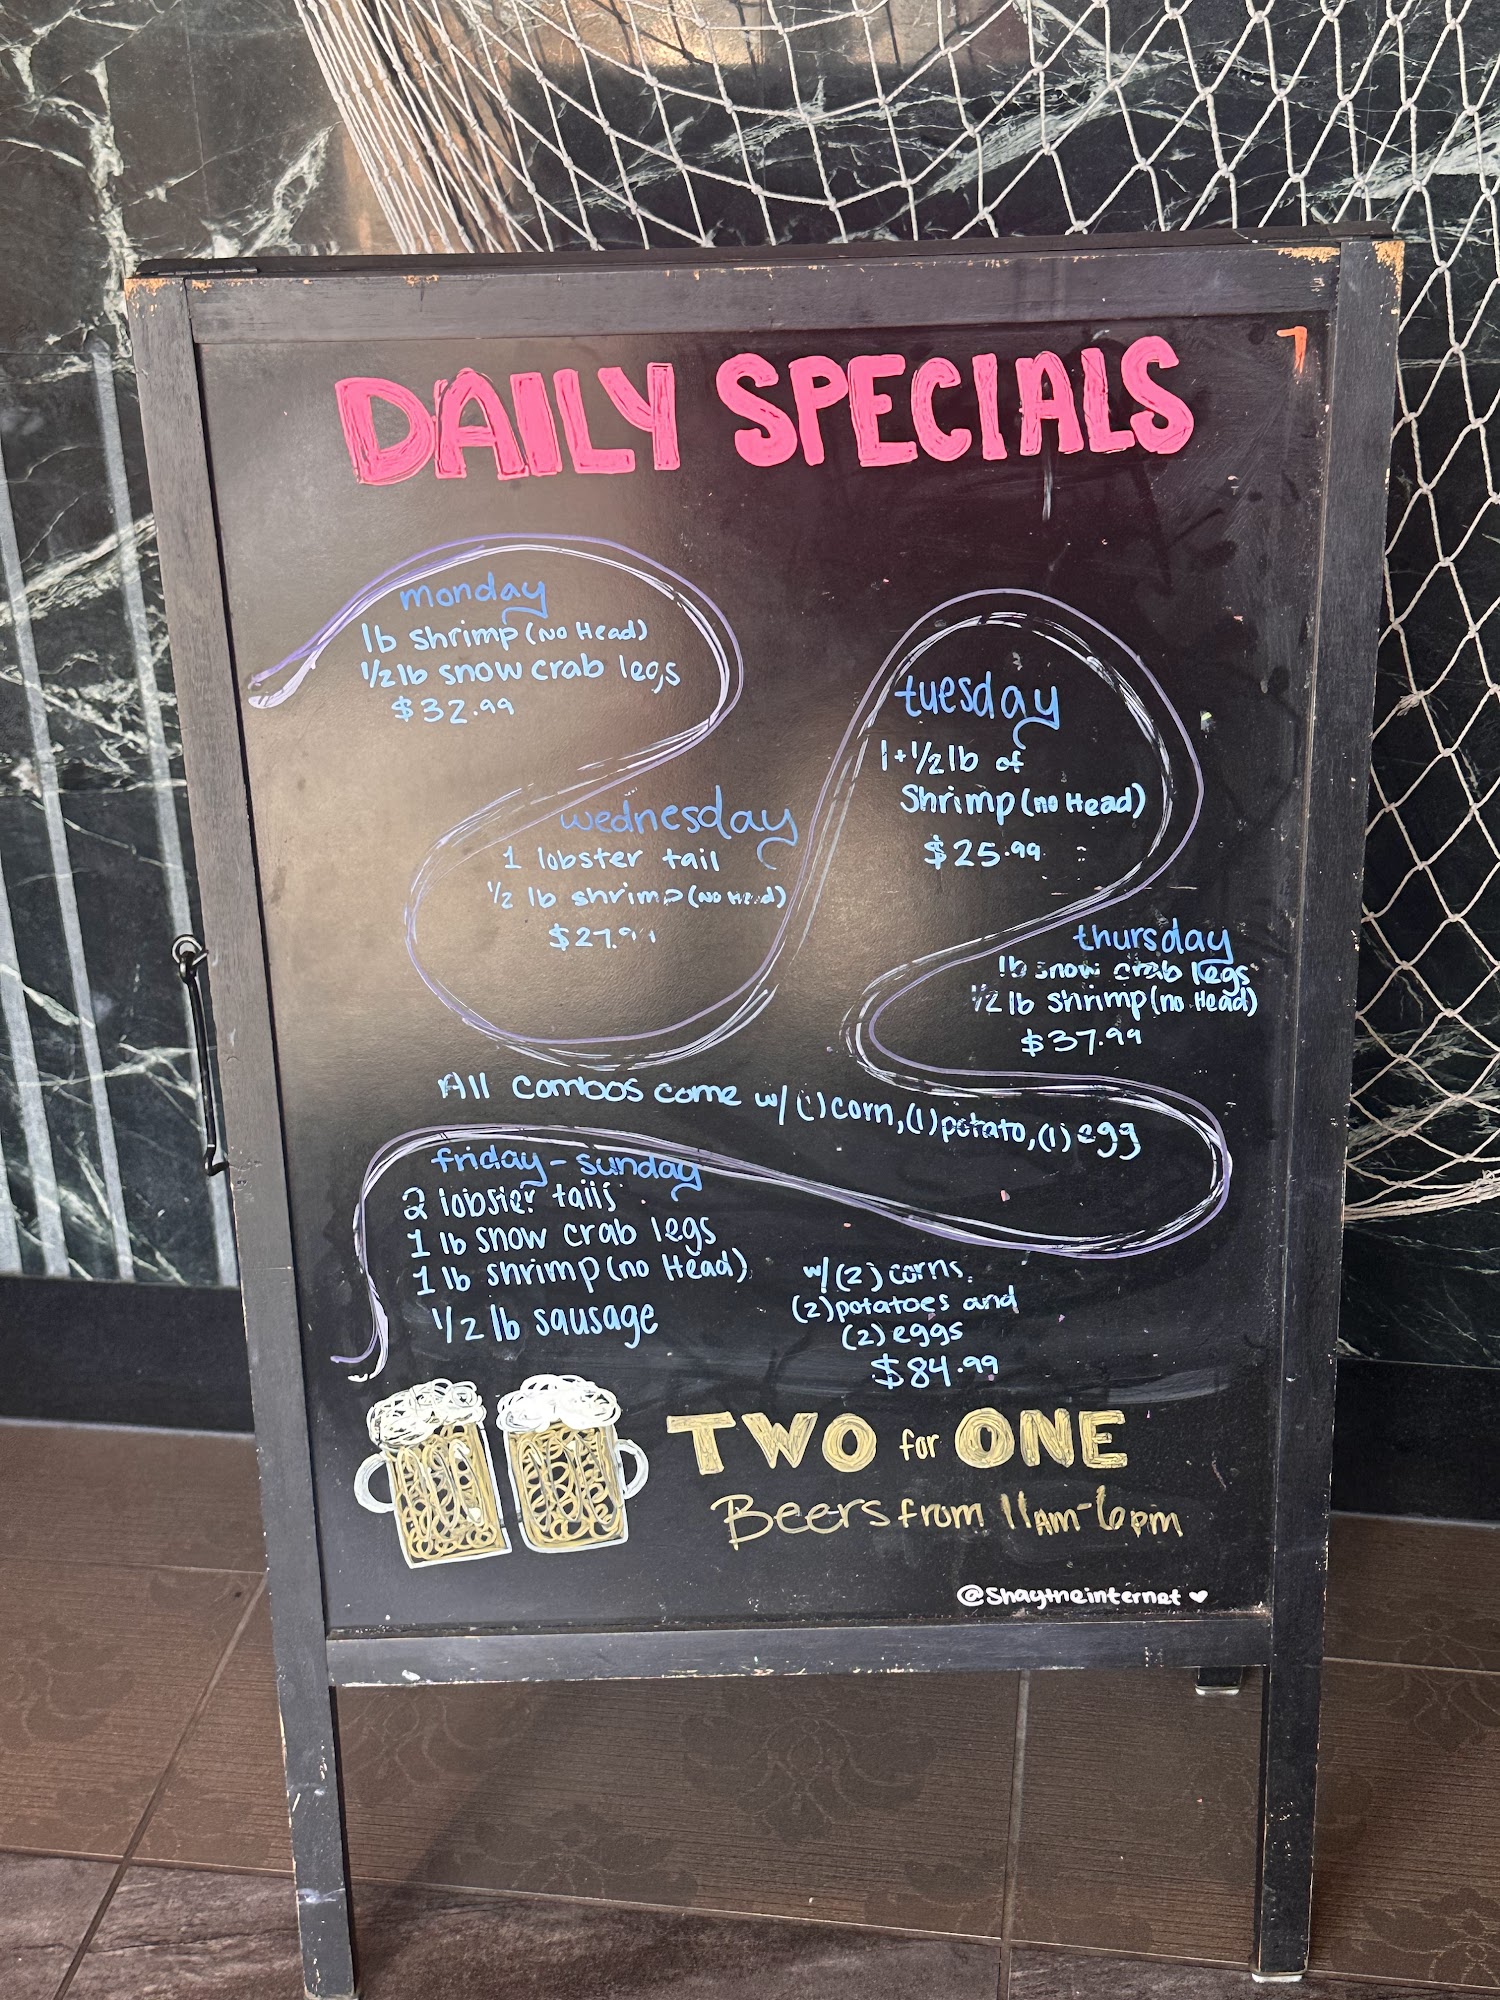 DAILY SPECIALS
monday
lb shrimp (no Head)
1/2 lb snow crab legs
$32.99
tuesday
1 + 1/2 lb of
Shrimp (no Head)
$25.99
wednesday
1 lobster tail
1/2 lb shrimp (no Head)
$27.99
thursday
lb snow crab legs
1/2 lb shrimp (no Head)
$37.99
All combos come w/ (1) corn, (1) potato, (1) egg
friday - sunday
2 lobster tails
1 lb snow crab legs
1 lb shrimp (no Head)
1/2 lb sausage
w/ (2) corns,
(2) potatoes and
(2) eggs
$84.99
TWO for ONE
Beers from 11am-6pm
@Shaytheinternet